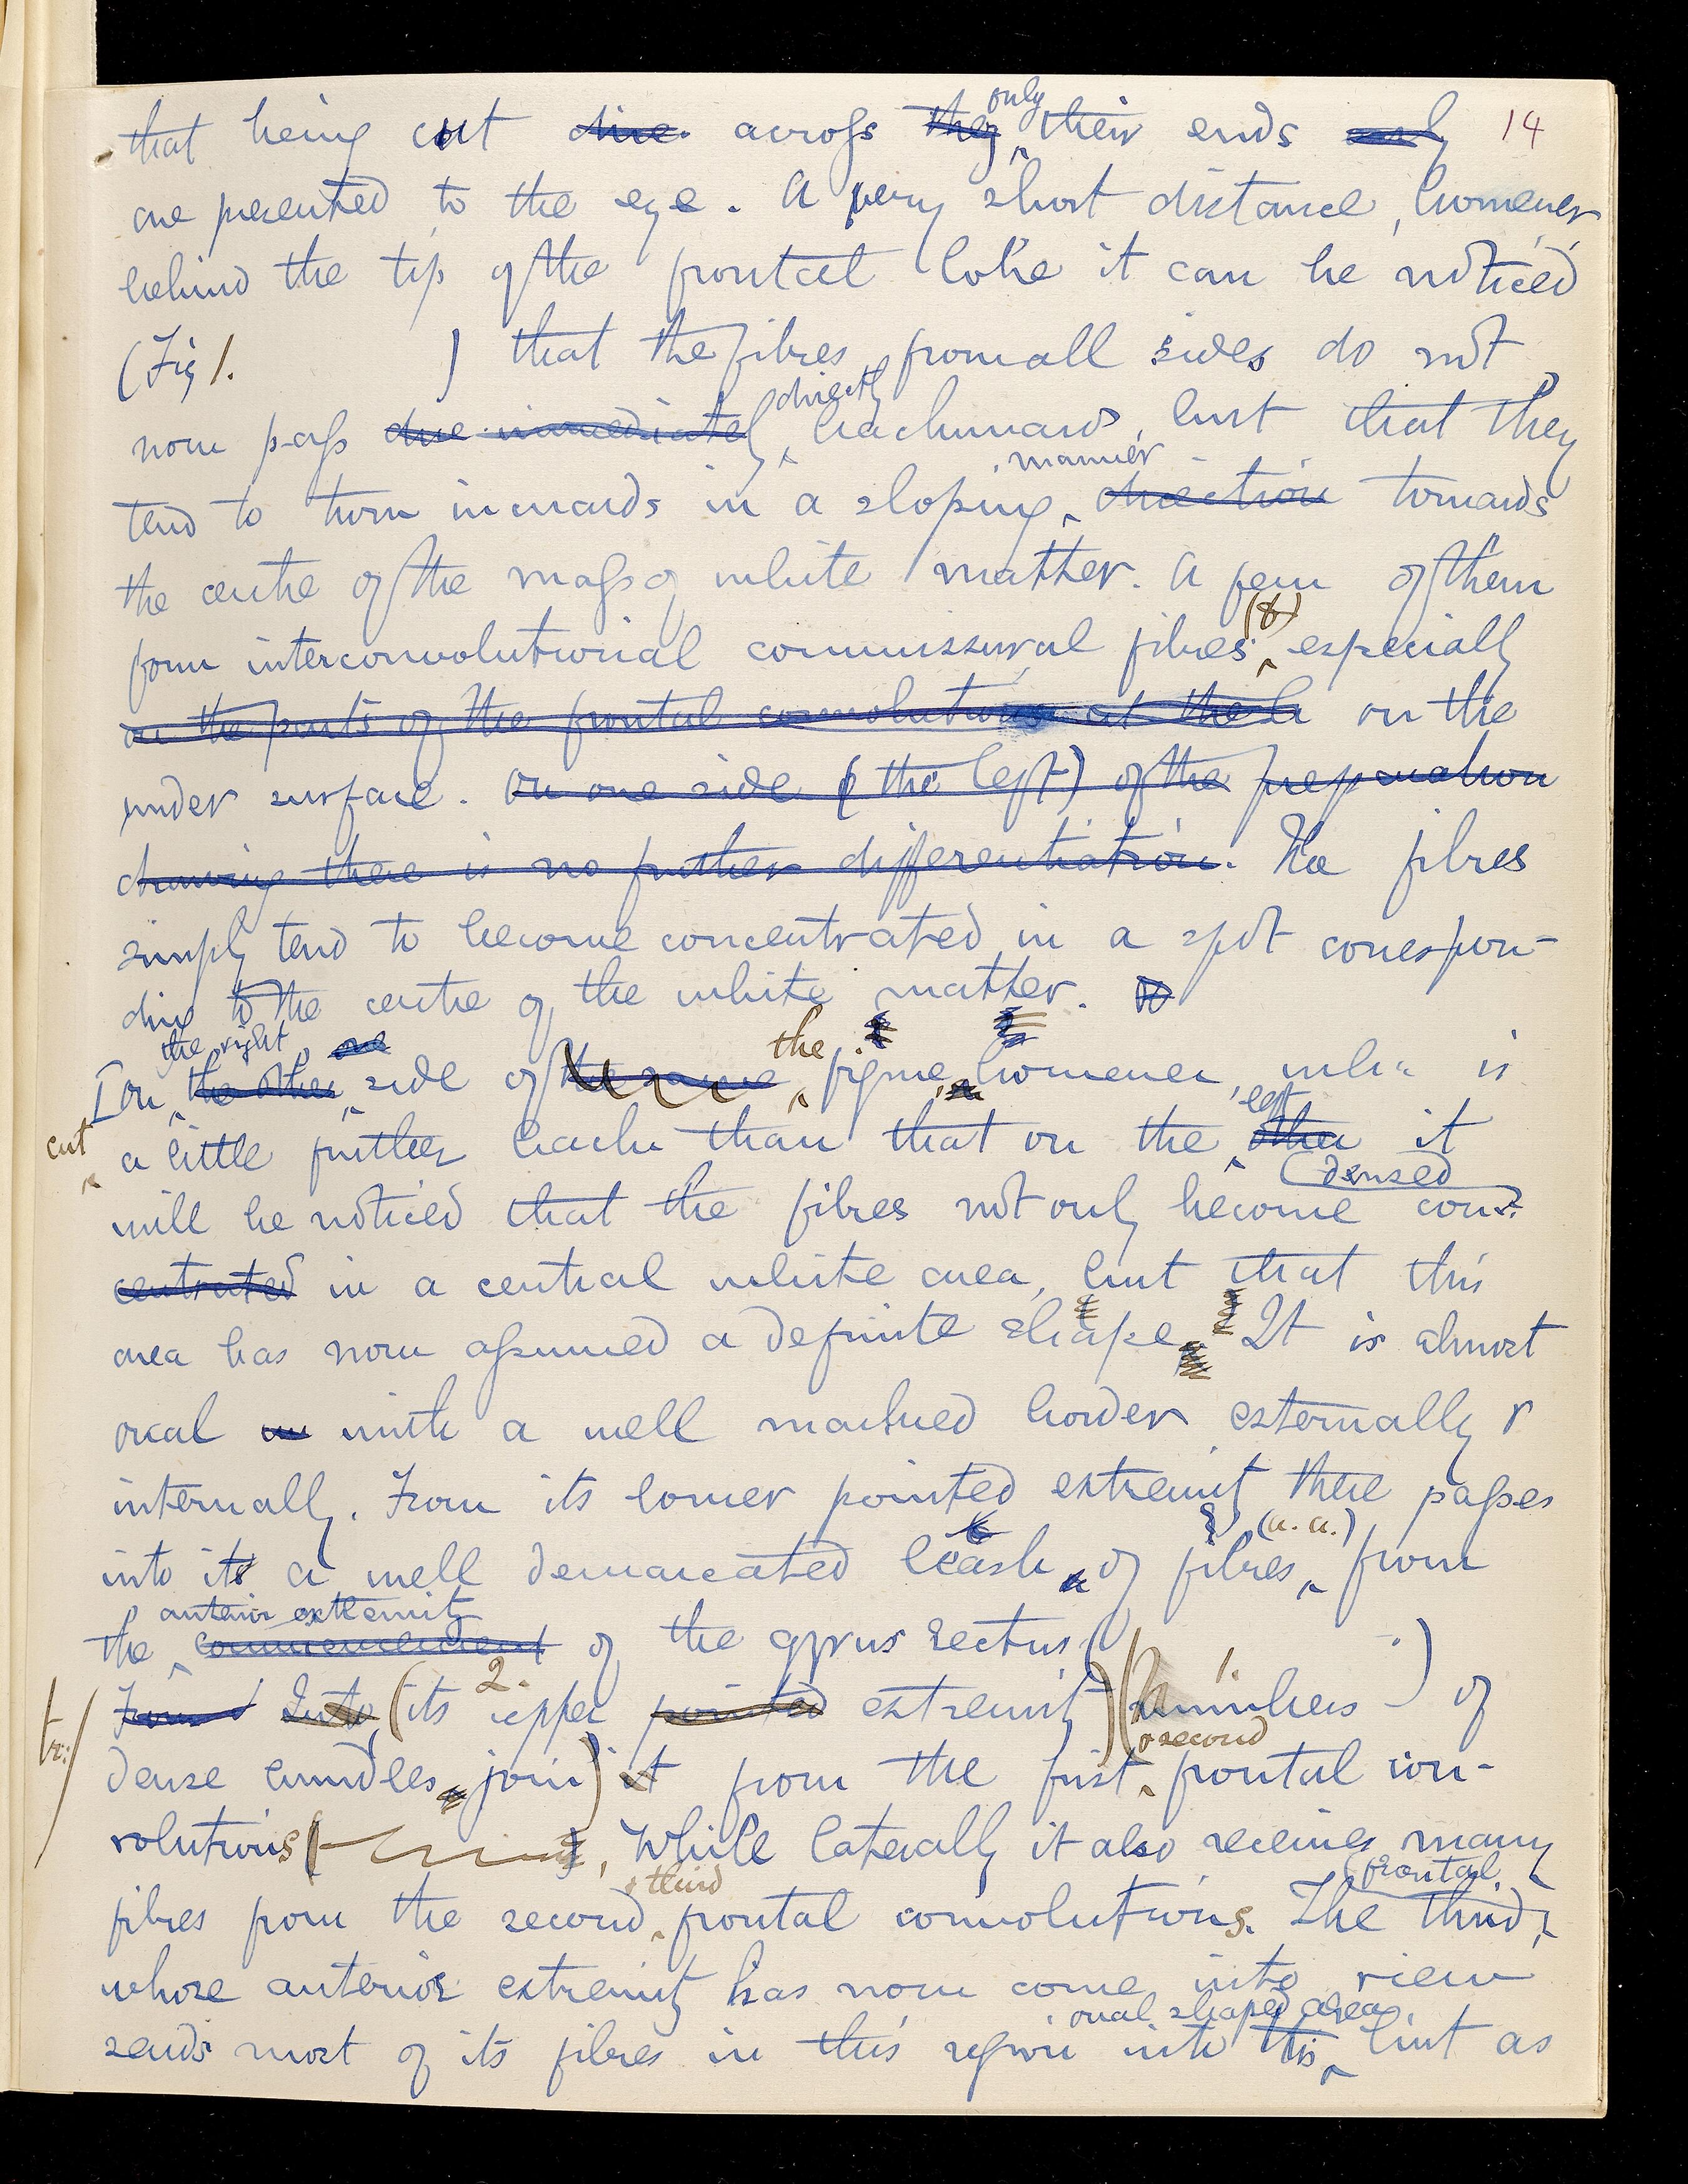 that being cut dire. across they only their ends only 14
are presented to the eye. A very short distance, however
behind the tip of the frontal lobe it can be noticed
(Fig 1. ) that the fibres from all sides do not
now pass due immediately directly backwards, but that they
tend to turn inwards in a sloping manner direction towards
the centre of the mass of white matter. A few of them
form interconvolutional commissural fibres, especially
on the parts of the frontal convolutions at the on the
under surface. On one side (the left) of the preparation
drawing there is no further differentiation. The fibres
simply tend to become concentrated in a spot correspon-
ding to the centre of the white matter.
[On the right the other side of the same the figure, however, which is
cut a little further back than that on the left other it
will be noticed that the fibres not only become con-densed
centrated in a central white area, but that this
area has now assumed a definite shape. It is almost
oval with a well marked border externally &
internally. From its lower pointed extremity there passes
into it a well demarcated leash of fibres (a.a.) from
the anterior extremity commencement of the gyrus rectus ( )
tr:/ From Into (its 2. upper pointed extremity) (1. numbers) of
dense bundles join) it from the first & second frontal con-
volutions, While laterally it also receives many
fibres from the second & third frontal convolutions. The third frontal,
whose anterior extremity has now come into view
sends most of its fibres in this region into this oval shaped area, but as